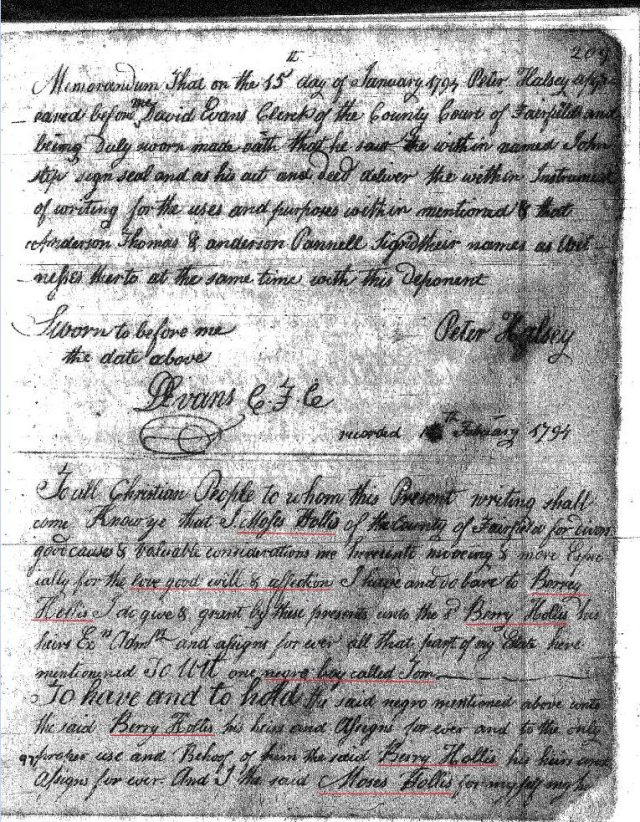 209
Memorandum That on the 15th day of January 1794 Peter Halsey app-
eared before me David Evans Clerk of the County Court of Fairfield and
being Duly sworn made oath that he saw the within named John
sign seal and as his act and deed deliver the within Instrument
of writing for the uses and purposes within mentioned & that
Anderson Thomas & anderson Pannell Signd their names as Wit
nesses therto at the same time with this Deponent
Sworn to before me
the date above
Peter Halsey
DEvans C F C
recorded February 1794
To all Christian People to whom this Present writing shall
come Know ye that I Moses Hollis of the County of Fairfield for divers
good causes & valuable considerations me hereunto moveing & more Espe
cially for the love good will & affection I have and do bare to Berrey
Hollis I do give & grant by these presents unto the sd Berry Hollis his
heirs Exrs Admrs and asigns for ever all that part of my Estate here
mentioned To Wit one negro boy called Tom
To have and to hold the said negro mentioned above unto
the said Berry Hollis his heirs and Asigns for ever and to the only
proper use and Behoof of him the said Berry Hollis his heirs and
Asigns for ever. And I the said Moses Hollis for my self my he